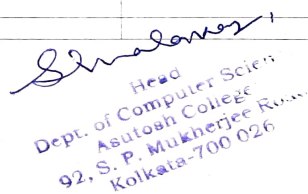 Head
Dept. of Computer Scien
Asutosh College
92, S. P. Mukherjee
Kolkata-700 026